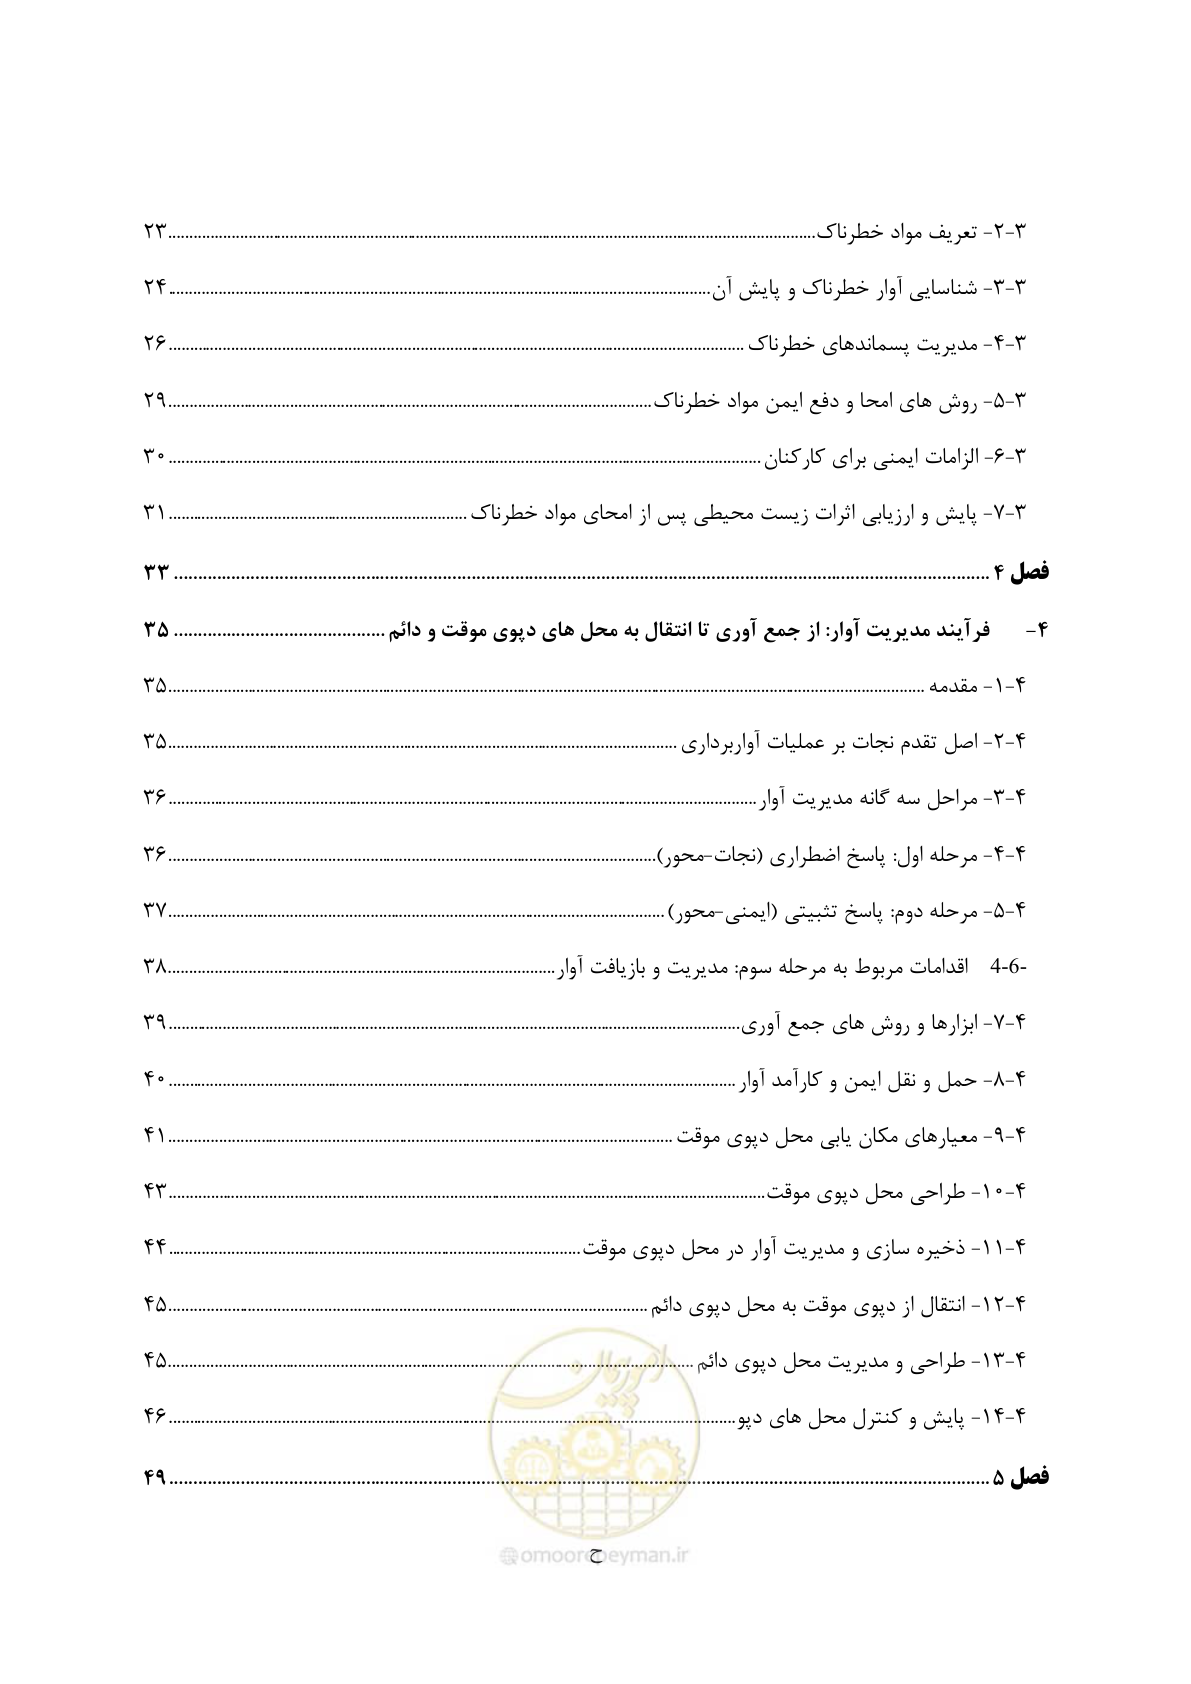 ۳-۲- تعریف مواد خطرناک ........ ۲۳
۳-۳- شناسایی آوار خطرناک و پایش آن ........ ۲۴
۳-۴- مدیریت پسماندهای خطرناک ........ ۲۶
۳-۵- روش های امحا و دفع ایمن مواد خطرناک ........ ۲۹
۳-۶- الزامات ایمنی برای کارکنان ........ ۳۰
۳-۷- پایش و ارزیابی اثرات زیست محیطی پس از امحای مواد خطرناک ........ ۳۱
فصل ۴ ........ ۳۳
۴- فرآیند مدیریت آوار: از جمع آوری تا انتقال به محل های دپوی موقت و دائم ........ ۳۵
۴-۱- مقدمه ........ ۳۵
۴-۲- اصل تقدم نجات بر عملیات آواربرداری ........ ۳۵
۴-۳- مراحل سه گانه مدیریت آوار ........ ۳۶
۴-۴- مرحله اول: پاسخ اضطراری (نجات-محور) ........ ۳۶
۴-۵- مرحله دوم: پاسخ تثبیتی (ایمنی-محور) ........ ۳۷
4-6- اقدامات مربوط به مرحله سوم: مدیریت و بازیافت آوار ........ ۳۸
۴-۷- ابزارها و روش های جمع آوری ........ ۳۹
۴-۸- حمل و نقل ایمن و کارآمد آوار ........ ۴۰
۴-۹- معیارهای مکان یابی محل دپوی موقت ........ ۴۱
۴-۱۰- طراحی محل دپوی موقت ........ ۴۳
۴-۱۱- ذخیره سازی و مدیریت آوار در محل دپوی موقت ........ ۴۴
۴-۱۲- انتقال از دپوی موقت به محل دپوی دائم ........ ۴۵
۴-۱۳- طراحی و مدیریت محل دپوی دائم ........ ۴۵
۴-۱۴- پایش و کنترل محل های دپو ........ ۴۶
امور پیمان
فصل ۵ ........ ۴۹
ح
@omoorepeyman.ir